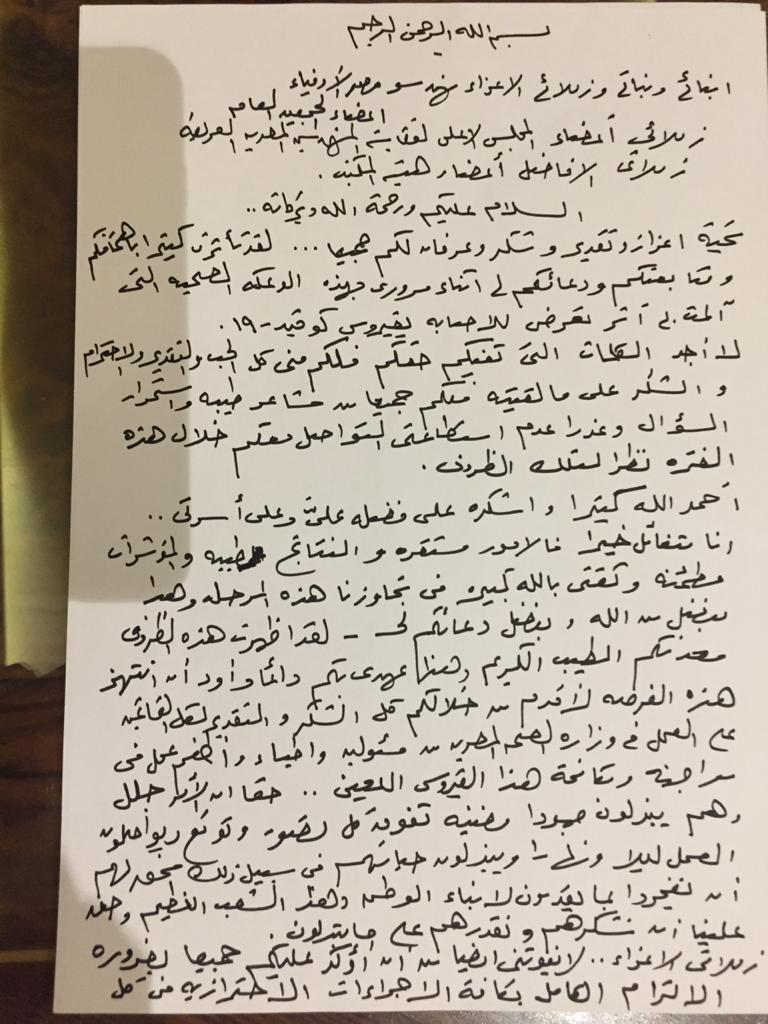 بسم الله الرحمن الرحيم
ابنائي وبناتي وزملائي الاعزاء مهندسو مصر الأوفياء
اعضاء الجمعيه العامه
زملائي أعضاء المجلس الاعلى لنقابة المهندسين المصريه العريقه
زملائي الافاضل أعضاء هيئه المكتب .
السلام عليكم ورحمة الله وبركاته ..
تحية اعزاز وتقدير وشكر وعرفان لكم جميعا ... لقد تأثرت كثيرا باهتمامكم
ومتابعتكم ودعائكم لي اثناء مروري بهذه الوعكه الصحيه التي
ألمت بي أثر تعرضي للاصابه بفيروس كوفيد-١٩ .
لا أجد الكلمات التي تفيكم حقكم فلكم مني كل الحب والتقدير والاحترام
والشكر على ما لقيته منكم جميعا من مشاعر طيبه واستمرار
السؤال وعذرا عدم استطاعتي التواصل معكم خلال هذه
الفتره نظرا لتلك الظروف .
أحمد الله كثيرا واشكره على فضله عليّ وعلى أسرتي ..
انا متفائل خيرا فالامور مستقره والنتائج طيبه والمؤشرات
مطمئنه وثقتي بالله كبيره في تجاوزنا هذه المرحله وهذا
بفضل من الله وبفضل دعائكم لي -- لقد اظهرت هذه الظروف
معدنكم الطيب الكريم وهذا عهدي بكم دائما وأود أن انتهز
هذه الفرصه لأقدم من خلالكم كل الشكر والتقدير لكل القائمين
على العمل في وزاره الصحه المصريه من مسئولين واطباء وأطقم عمل في
مواجهة ومكافحة هذا الفيروس اللعين .. حقا ان الأمر جلل
وهم يبذلون جهودا مضنيه تفوق كل تصور وتوقع ويواصلون
العمل ليلا ونهارا ويبذلون حياتهم في سبيل ذلك فحق لهم
أن يفخروا بما يقدمون لابناء الوطن وهذا الشعب العظيم وحق
علينا أن نشكرهم ونقدرهم على ما يبذلون .
زملائي الاعزاء .. لا يفوتني ايضا من ان أؤكد عليكم جميعا بضروره
الالتزام الكامل بكافة الاجراءات الاحترازيه في كل